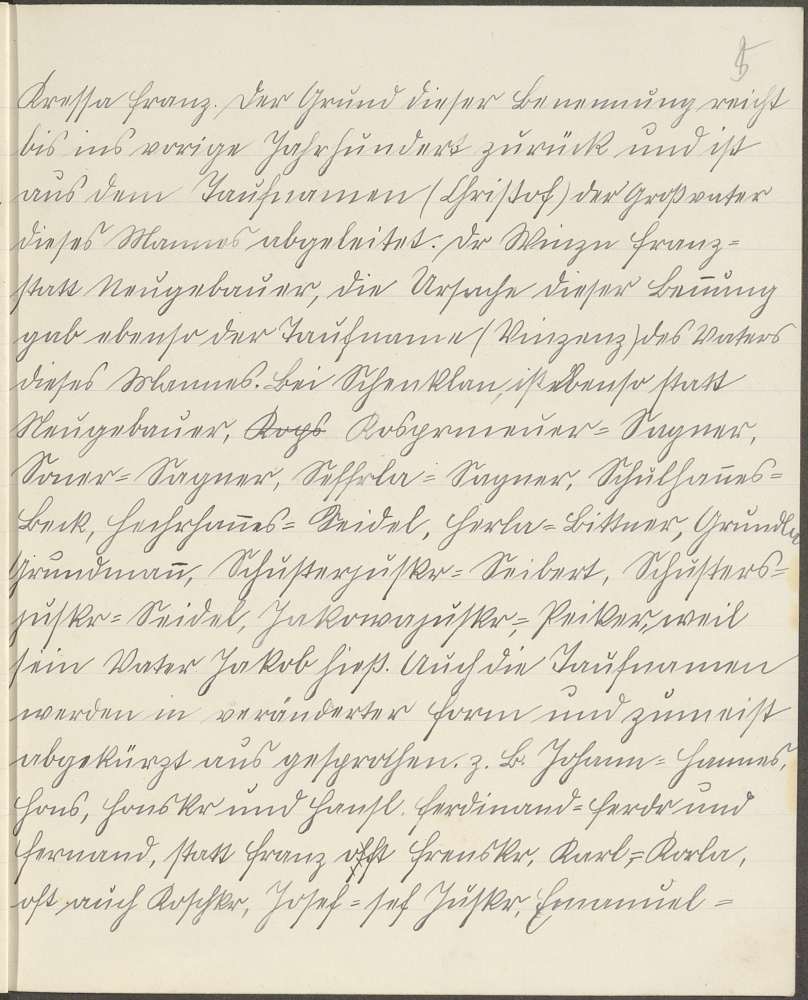 5
Kressa Franz. Der Grund dieser Benennung reicht
bis ins vorige Jahrhundert zurück und ist
aus dem Taufnamen (Christof) der Großvater
dieses Mannes abgeleitet. Dr Winzn Franz=
statt Neugebauer, die Ursache dieser Benn̄ung
gab ebenso der Taufname (Vinzenz) des Vaters
dieses Mannes. Bei Schenklan, ist ebenso statt
Neugebauer, Sagner,
Soner= Sagner, Seffrla= Sagner, Schulhan̄es=
Beck, Hechrhan̄es= Seidel, Herla= Bittner,
Grundman̄, Schusterjuskr= Seibert, Schusters=
juskr= Seidel, Jakowajuskr= Peiker, weil
sein Vater Jakob hieß. Auch die Taufnamen
werden in veränderter Form und zumeist
abgekürzt aus gesprochen. z. B. Johann= Hannes,
Hons, Honskr und Hansl. Ferdinand= Ferdr und
Fernand, statt Franz oft Frenskr, Karl,= Korla,
oft auch Koschkr, Josef= Sef Juskr, Emanuel=